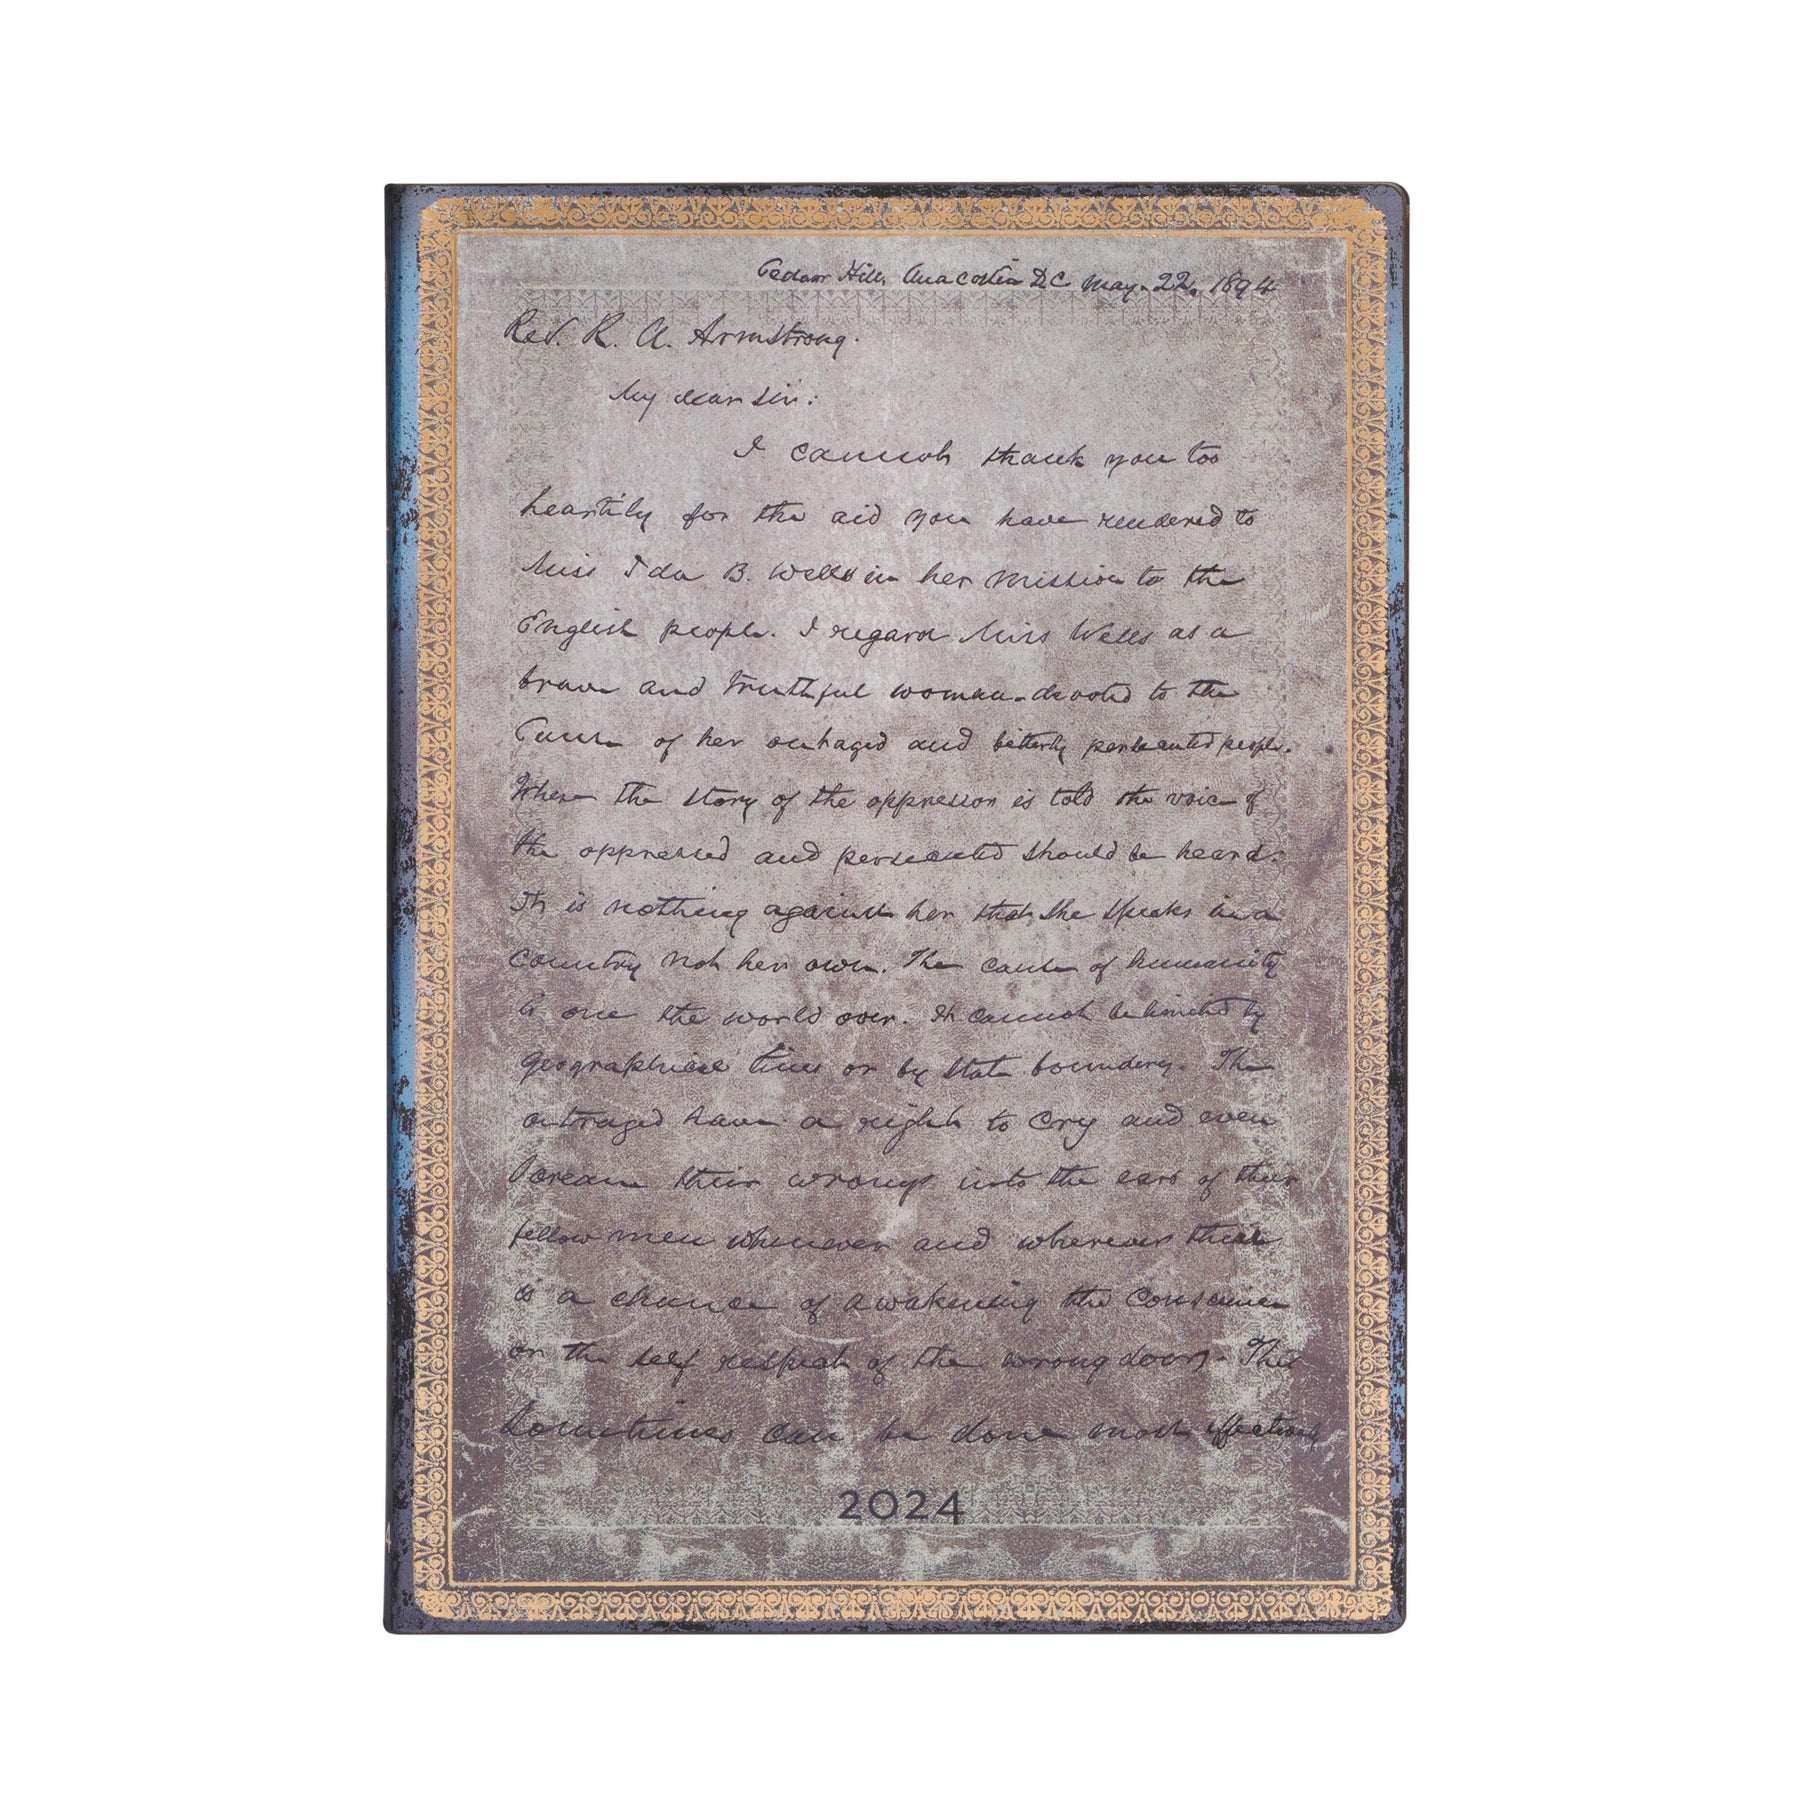 Cedar Hill, Anacostia D.C. May. 22, 1894
Rev. R. A. Armstrong.
My dear Sir:
I cannot thank you too
heartily for the aid you have rendered to
Miss Ida B. Wells in her mission to the
English people. I regard Miss Wells as a
brave and truthful woman - devoted to the
Cause of her outraged and bitterly persecuted people.
Where the story of the oppressor is told the voice of
the oppressed and persecuted should be heard.
It is nothing against her that she speaks in a
country not her own. The cause of humanity
is one the world over. It cannot be limited by
geographical lines or by state boundery. The
outraged have a right to cry and even
Scream their wrongs into the ears of their
fellow men whenever and wherever there
is a chance of awakening the Conscience
or the self respect of the wrong doers. This
Sometimes can be done most effectively
2024
4